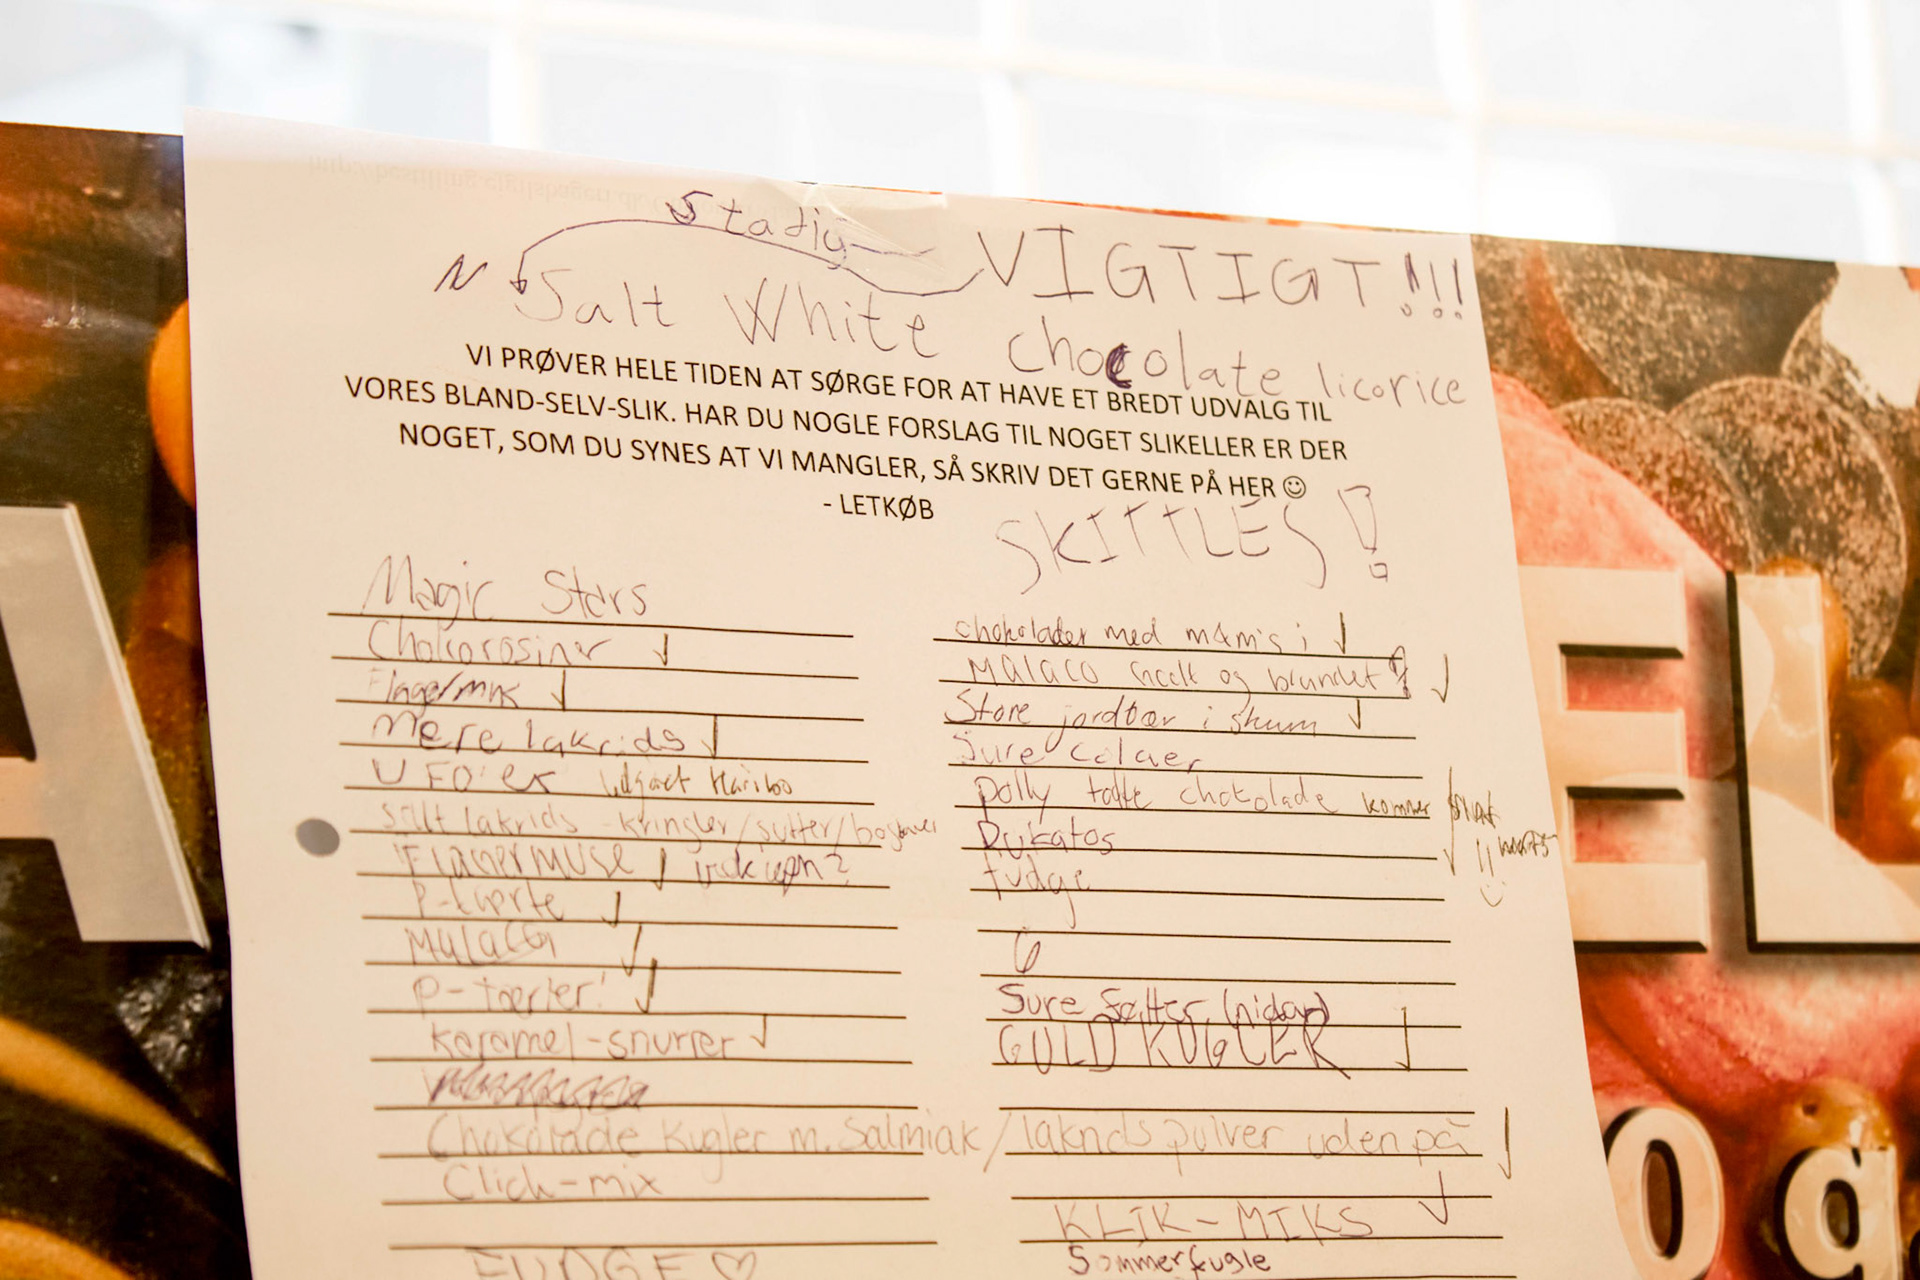 Stadig
VIGTIGT!!!
N
Salt White chocolate licorice
VI PRØVER HELE TIDEN AT SØRGE FOR AT HAVE ET BREDT UDVALG TIL
VORES BLAND-SELV-SLIK. HAR DU NOGLE FORSLAG TIL NOGET SLIKELLER ER DER
NOGET, SOM DU SYNES AT VI MANGLER, SÅ SKRIV DET GERNE PÅ HER ☺
- LETKØB
SKITTLES!
Magic Stars
Chokorosiner ✓
Flagermus ✓
Mere lakrids ✓
UFO'er udgået Haribo
salt lakrids -kringler/sutter/bogstaver
Flagermuse ✓
P-tærte ✓
Malaco ✓
P-tærter! ✓
karamel-snurrer ✓
Chokolade kugler m. Salmiak/lakridspulver uden på ✓
Click-mix
FUDGE ♡
chokolader med m&m's i ✓
Malaco salt og brændet ✓
Store jordbær i skum ✓
Sure colaer
Polly chokolade kommer
Dukatos ✓
fudge
Sure Søtter (nidar)
GULD KUGLER ✓
KLIK-MIKS ✓
Sommerfugle
A
EL
og